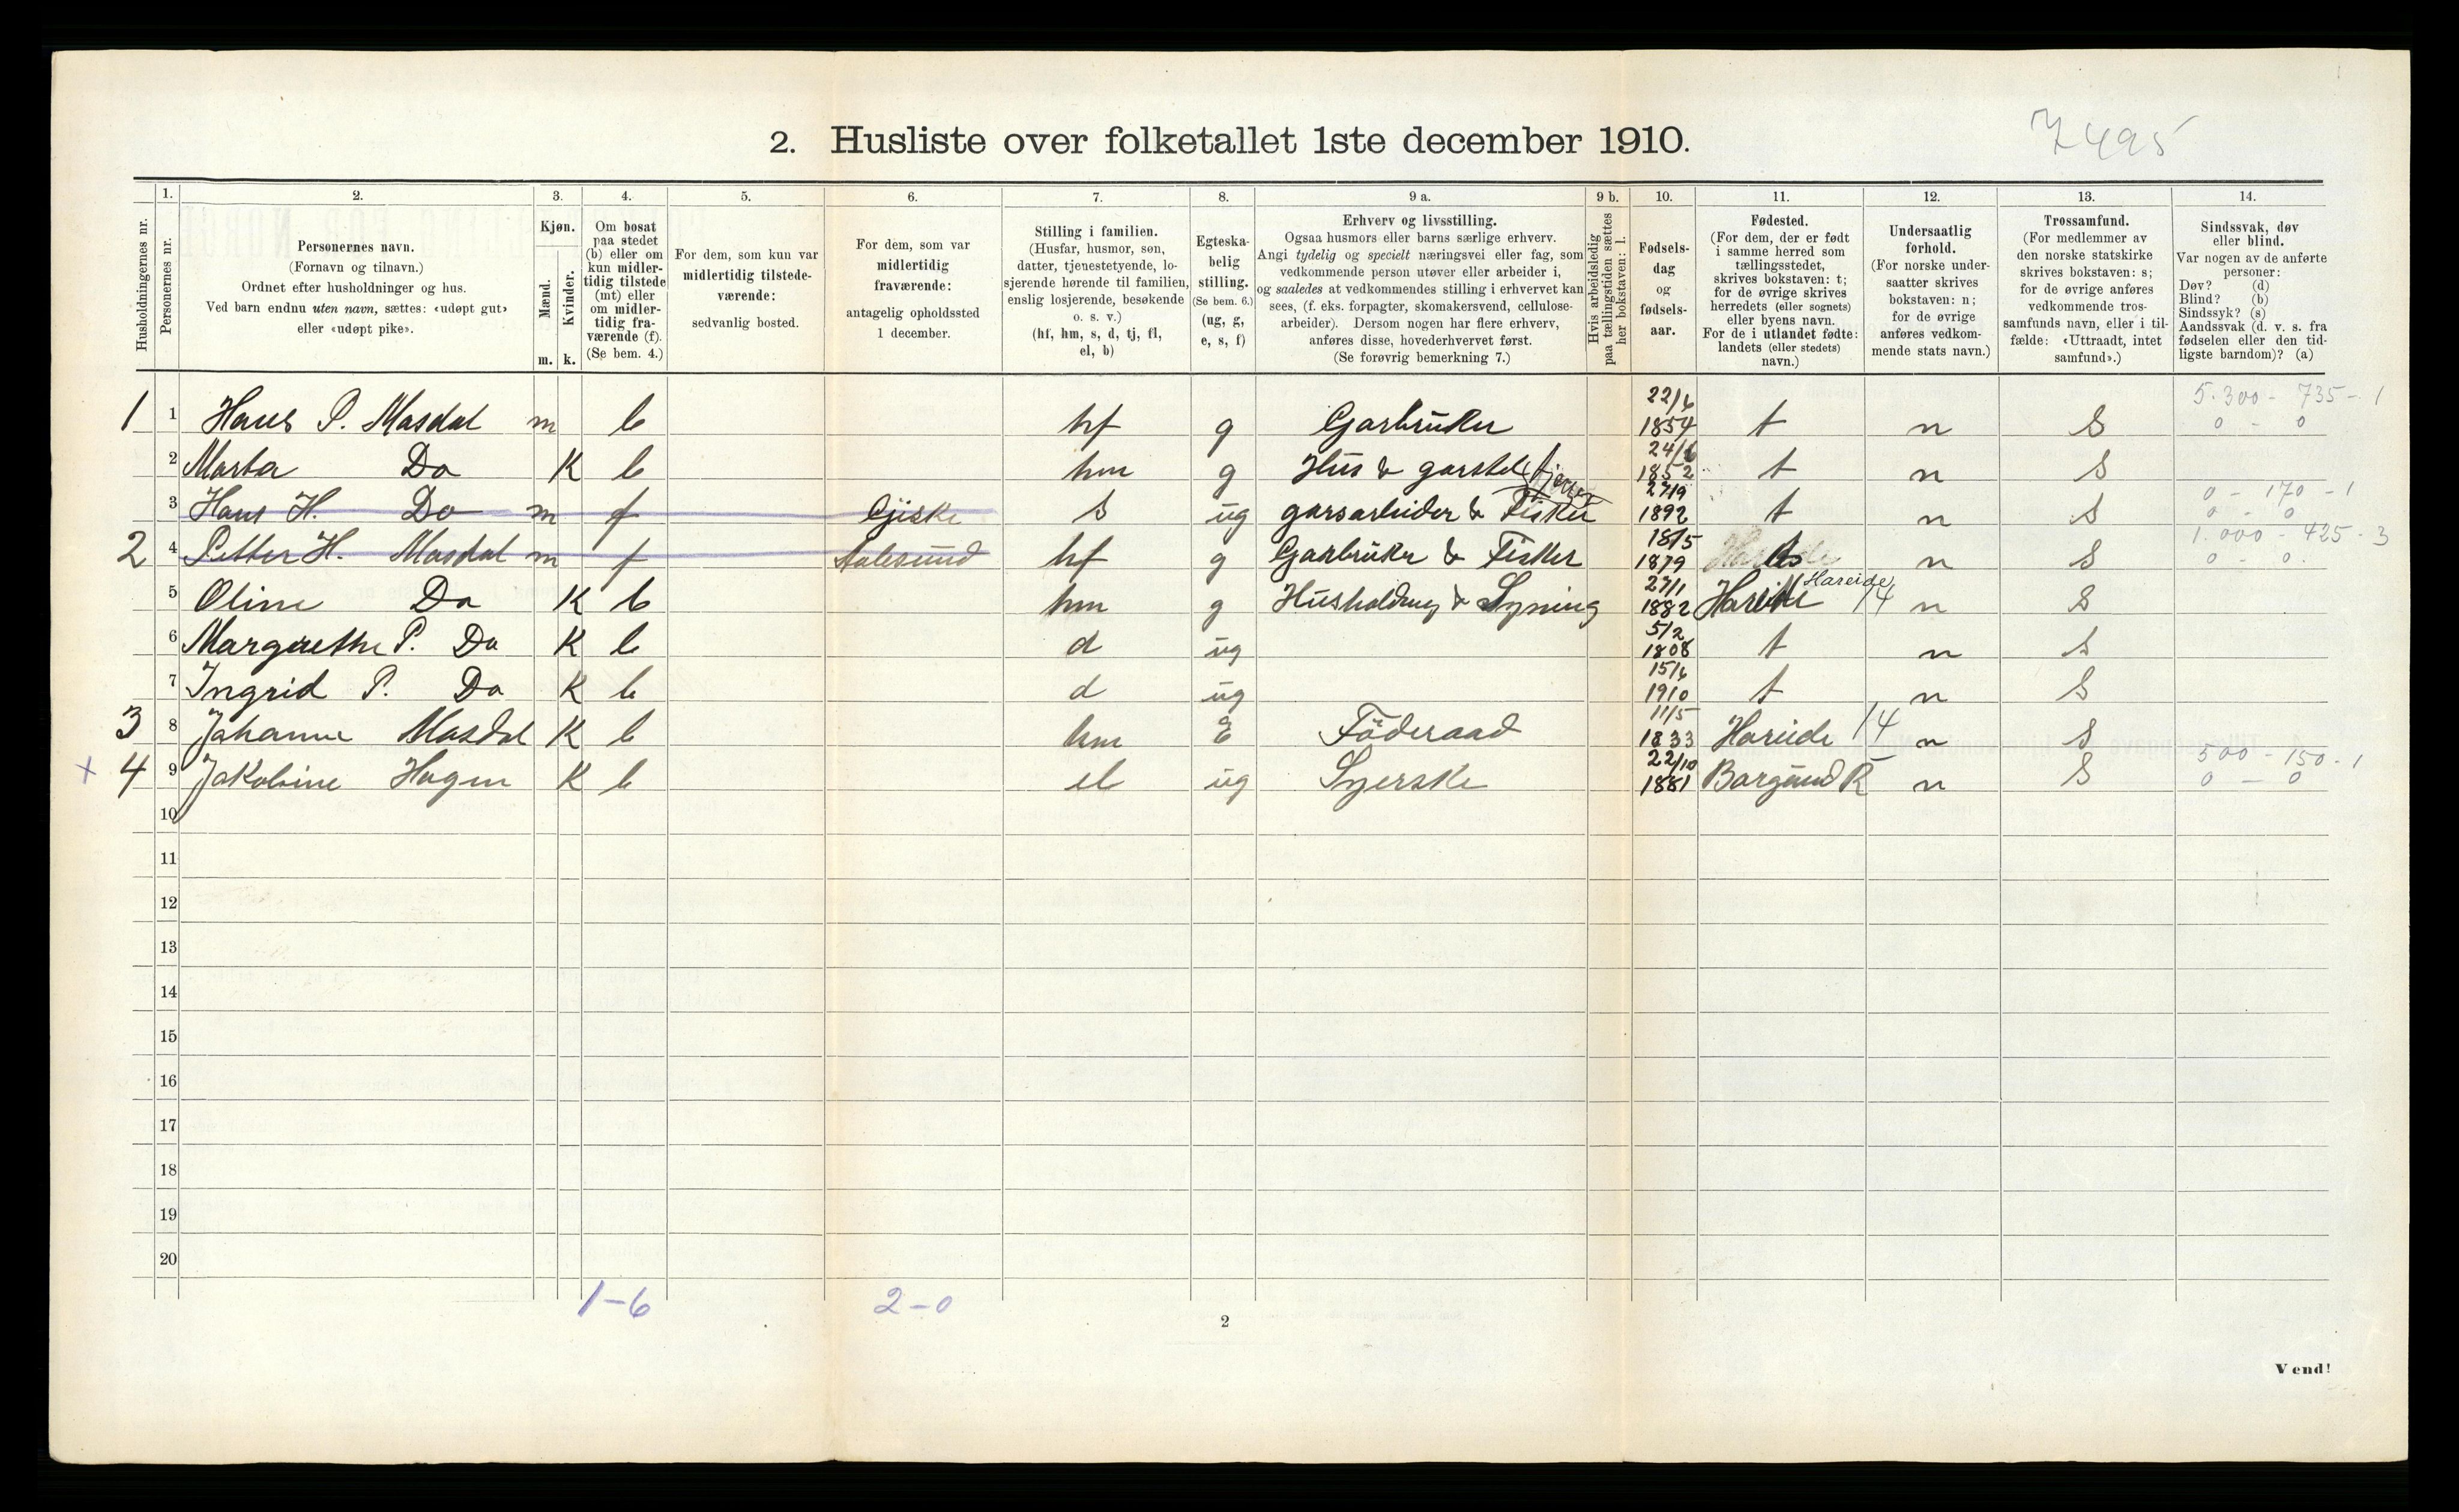 7495
2. Husliste over folketallet 1ste december 1910.
Husholdningernes nr.
1.
Personernes nr.
2.
Personernes navn.
(Fornavn og tilnavn.)
Ordnet efter husholdninger og hus.
Ved barn endnu uten navn, sættes: «udøpt gut»
eller «udøpt pike».
3.
Kjøn.
Mænd.
Kvinder.
m. k.
4.
Om bosat
paa stedet
(b) eller om
kun midler-
tidig tilstede
(mt) eller
om midler-
tidig fra-
værende (f).
(Se bem. 4.)
5.
For dem, som kun var
midlertidig tilstede-
værende:
sedvanlig bosted.
6.
For dem, som var
midlertidig
fraværende:
antagelig opholdssted
1 december.
7.
Stilling i familien.
(Husfar, husmor, søn,
datter, tjenestetyende, lo-
sjerende hørende til familien,
enslig losjerende, besøkende
o. s. v.)
(hf, hm, s, d, tj, fl,
el, b)
8.
Egteska-
belig
stilling.
(Se bem. 6.)
(ug, g,
e, s, f)
9 a.
Erhverv og livsstilling.
Ogsaa husmors eller barns særlige erhverv.
Angi tydelig og specielt næringsvei eller fag, som
vedkommende person utøver eller arbeider i,
og saaledes at vedkommendes stilling i erhvervet kan
sees, (f. eks. forpagter, skomakersvend, cellulose-
arbeider). Dersom nogen har flere erhverv,
anføres disse, hovederhvervet først.
(Se forøvrig bemerkning 7.)
9 b.
Hvis arbeidsledig
paa tællingstiden sættes
her bokstaven: l.
10.
Fødsels-
dag
og
fødsels-
aar.
11.
Fødested.
(For dem, der er født
i samme herred som
tællingsstedet,
skrives bokstaven: t;
for de øvrige skrives
herredets (eller sognets)
eller byens navn.
For de i utlandet fødte:
landets (eller stedets)
navn.)
12.
Undersaatlig
forhold.
(For norske under-
saatter skrives
bokstaven: n;
for de øvrige
anføres vedkom-
mende stats navn.)
13.
Trossamfund.
(For medlemmer av
den norske statskirke
skrives bokstaven: s;
for de øvrige anføres
vedkommende tros-
samfunds navn, eller i til-
fælde: «Uttraadt, intet
samfund».)
14.
Sindssvak, døv
eller blind.
Var nogen av de anførte
personer:
Døv? (d)
Blind? (b)
Sindssyk? (s)
Aandssvak (d. v. s. fra
fødselen eller den tid-
ligste barndom)? (a)
1 1 Hans P. Masdal m b hf g Garbruker 22/6 1854 t n S 5.300 - 735 - 1 0 - 0
2 Marta Do K b hm g Hus & garstel 1852 t n S
3 Hans H. Do m f Gjiske s ug garsarbeider & Fisker 27/9 1892 t n S 0 - 170 - 1 0 - 0
2 4 Petter H. Masdal m f Aalesund hf g Garbruker & Fisker 18/5 1879 n S 1.000 - 425 - 3 0 - 0.
5 Oline Do K b hm g Husholdning & Syning 27/1 1882 Hareide 14 n S
6 Margrethe P. Do K b d ug 5/2 1908 t n S
7 Ingrid P. Do K b d ug 15/6 1910 t n S
3 8 Johanne Masdal K b hm E Föderaad 11/5 1833 Hareide 14 n S
+ 4 9 Jakobine Hagen K b el ug Syerske 22/10 1881 Borgund R n S 500 - 150 - 1 0 - 0
10
11
12
13
14
15
16
17
18
19
20
1-6 2-0
2
Vend!